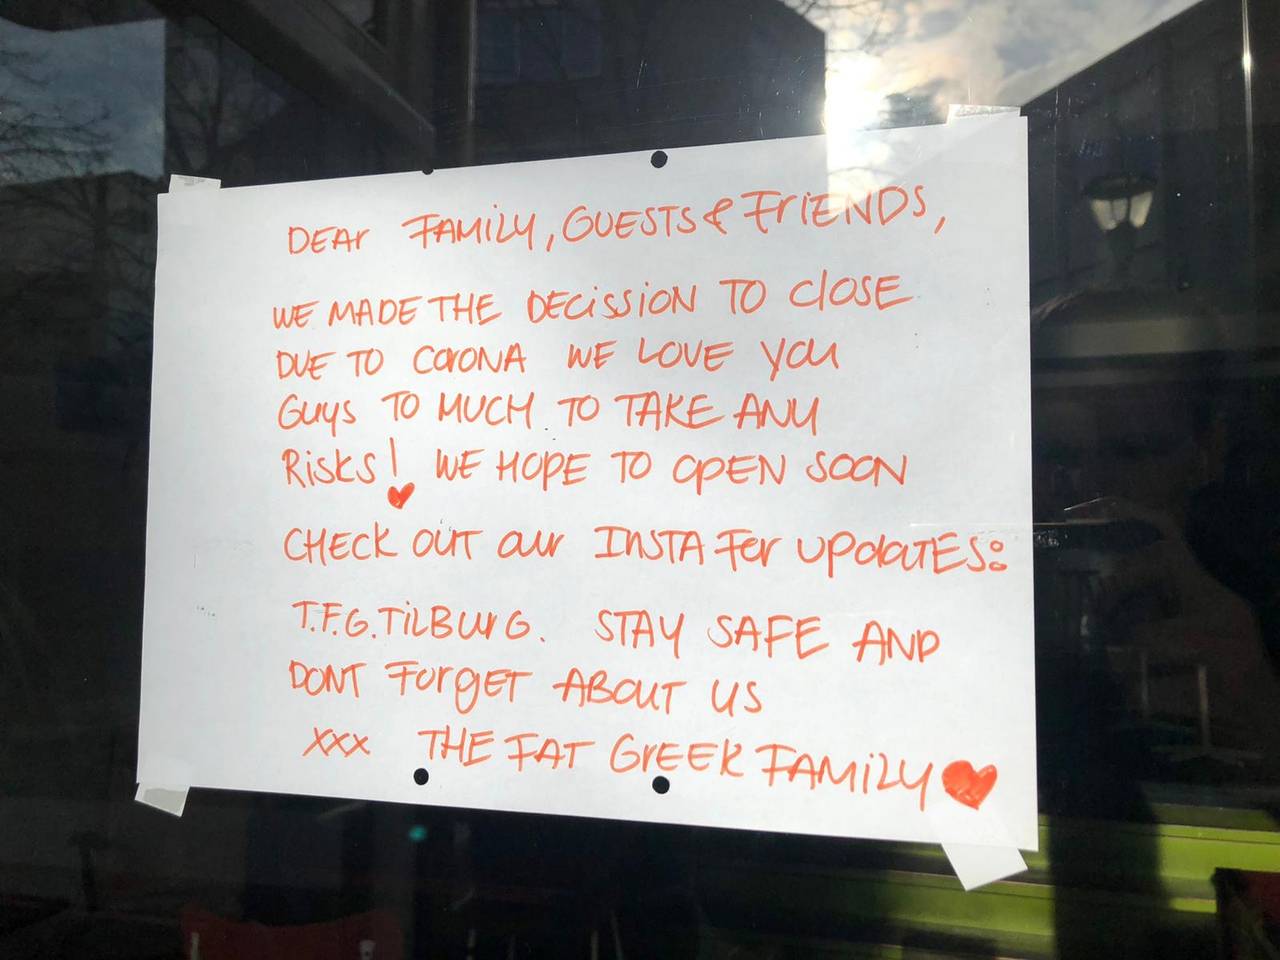 DEAR FAMILY, GUESTS & FRIENDS,
WE MADE THE DECISSION TO CLOSE
DUE TO CORONA WE LOVE YOU
GUYS TO MUCH TO TAKE ANY
RISKS! WE HOPE TO OPEN SOON
CHECK OUT OUR INSTA FOR UPDATES:
T.F.G.TILBURG. STAY SAFE AND
DONT FORGET ABOUT US
XXX THE FAT GREEK FAMILY